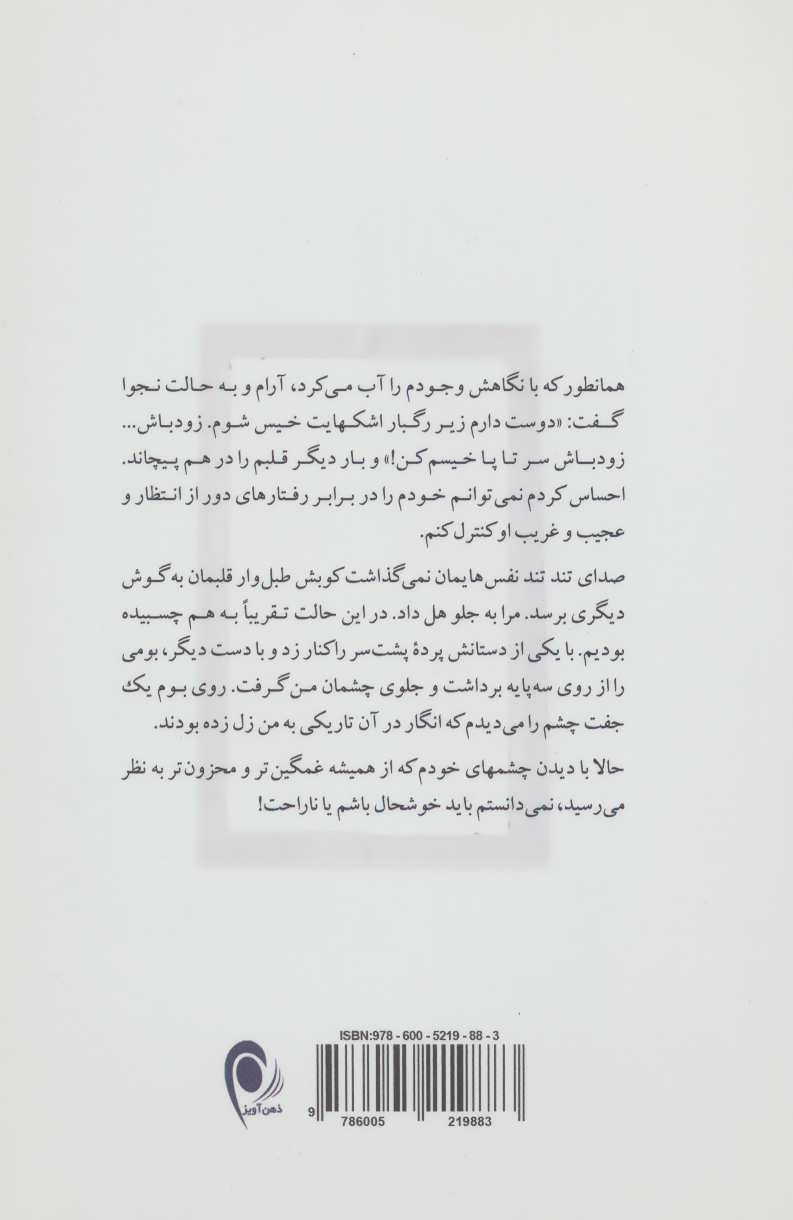 همانطور که با نگاهش وجودم را آب می‌کرد، آرام و به حالت نجوا
گفت: «دوست دارم زیر رگبار اشکهایت خیس شوم. زودباش...
زودباش سر تا پا خیسم کن!» و بار دیگر قلبم را در هم پیچاند.
احساس کردم نمی‌توانم خودم را در برابر رفتارهای دور از انتظار و
عجیب و غریب او کنترل کنم.
صدای تند تند نفس‌هایمان نمی‌گذاشت کوبش طبل‌وار قلبمان به گوش
دیگری برسد. مرا به جلو هل داد. در این حالت تقریباً به هم چسبیده
بودیم. با یکی از دستانش پردهٔ پشت‌سر را کنار زد و با دست دیگر، بومی
را از روی سه‌پایه برداشت و جلوی چشمان من گرفت. روی بوم یک
جفت چشم را می‌دیدم که انگار در آن تاریکی به من زل زده بودند.
حالا با دیدن چشمهای خودم که از همیشه غمگین‌تر و محزون‌تر به نظر
می‌رسید، نمی‌دانستم باید خوشحال باشم یا ناراحت!
ISBN:978 - 600 - 5219 - 88 - 3
ذهن‌آویز
9 786005 219883